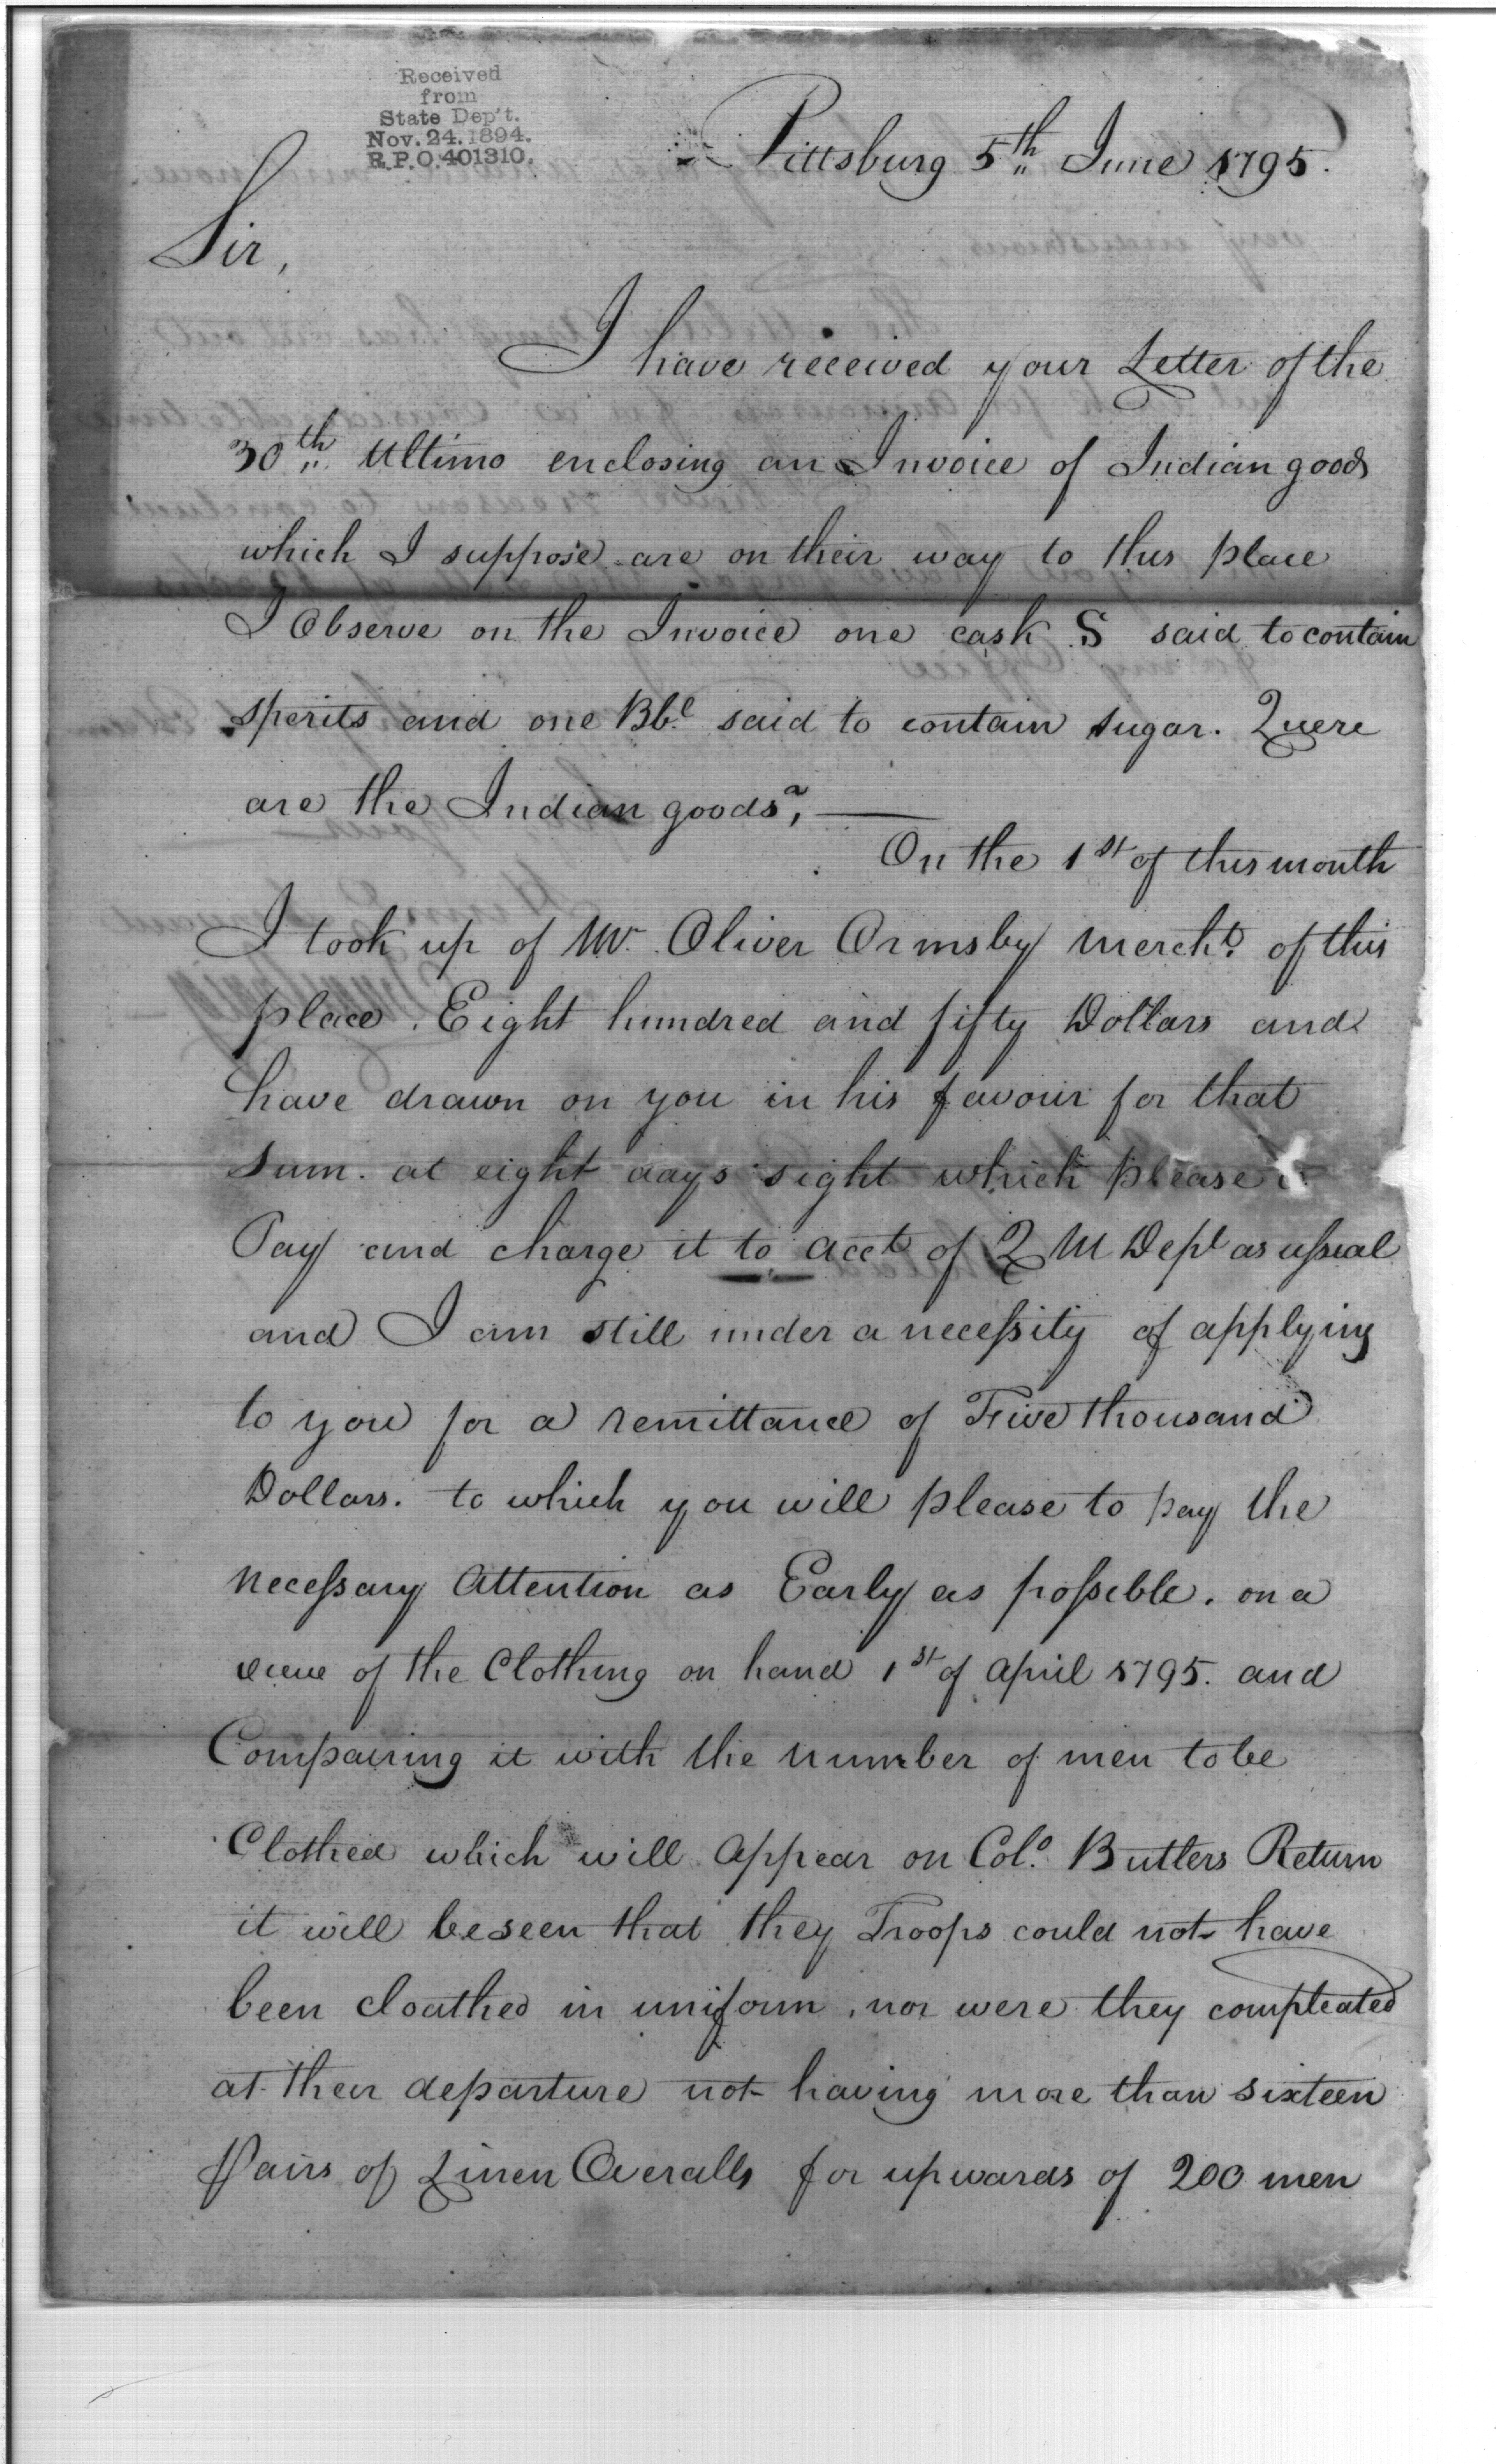 Received
from
State Dep't.
Nov. 24. 1894.
R.P.O. 401310.
Pittsburg 5th June 1795.
Sir,
I have received your Letter of the
30th Ultimo enclosing an Invoice of Indian goods
which I suppose are on their way to this place
I Observe on the Invoice one cask S said to contain
sperits and one Bbl said to contain sugar. Quere
are the Indian goods?, —
On the 1st of this month
I took up of Mr. Oliver Ormsby Mercht. of this
place. Eight hundred and fifty Dollars and
have drawn on you in his favour for that
Sum. at eight days sight which please
Pay and charge it to acct of Q M Dept as usual
and I am still under a necessity of applying
to you for a remittance of Five thousand
Dollars. to which you will please to pay the
necessary Attention as Early as possible. on a
view of the Clothing on hand 1st of April 1795. and
Compairing it with the number of men to be
Clothed which will appear on Colo. Butlers Return
it will be seen that they Troops could not have
been cloathed in uniform, nor were they compleated
at their departure not having more than sixteen
Pairs of Linen Overalls for upwards of 200 men